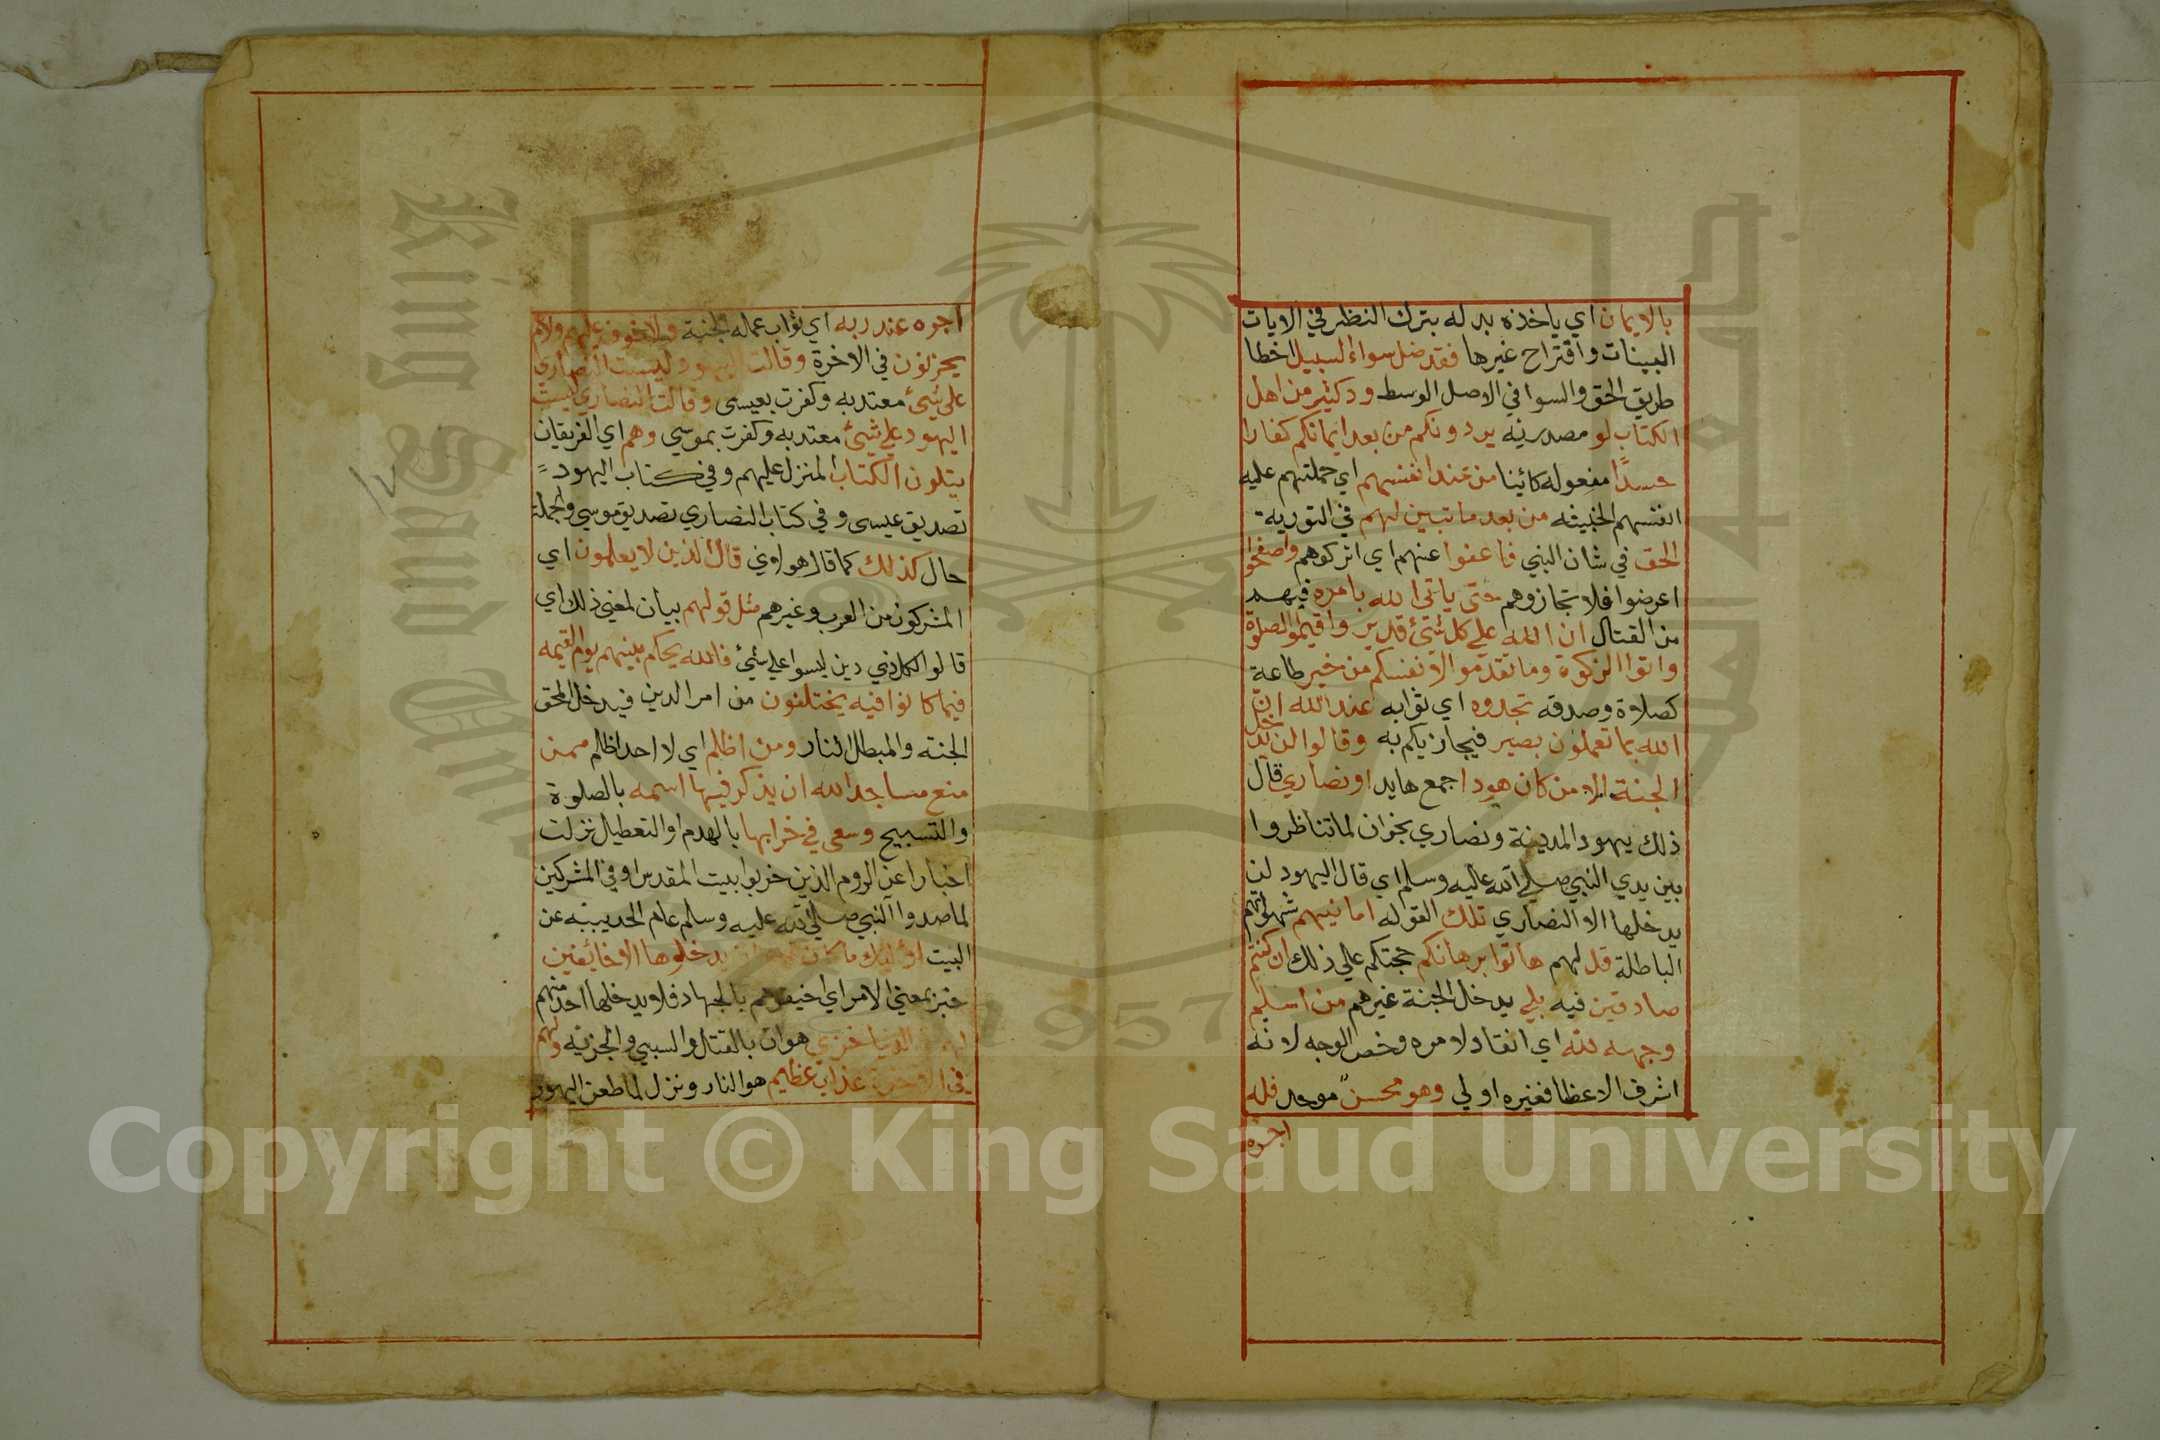 بالايمان اي ياخذه بدله بترك النظر في الايات
البينات واقتراح غيرها فقد ضل سواء السبيل اخطا
طريق الحق والسوا في الاصل الوسط ود كثير من اهل
الكتاب لو مصدريه يردونكم من بعد ايمانكم كفارا
حسدًا مفعوله كائنا من عند انفسهم اي حملتهم عليه
انفسهم الخبيثه من بعد ما تبين لهم في التورية
الحق في شان النبي فاعفوا عنهم اي اتركوهم واصفحوا
اعرضوا فلا تجازوهم حتى ياتي الله بامره فيهم
من القتال ان الله علي كل شئ قدير واقيموا الصلوة
واتوا الزكوة وما تقدموا لانفسكم من خير طاعة
كصلاة وصدقه تجدوه اي ثوابه عند الله ان
الله بما تعملون بصير فيجازيكم به وقالوا لن يدخل
الجنة الا من كان هودا جمع هايد او نصاري قال
ذلك يهود المدينة ونصاري نجران لما تناظروا
بين يدي النبي صلي الله عليه وسلم اي قال اليهود لن
يدخلها الا النصاري تلك القوله امانيهم شهواتهم
الباطلة قل لهم هاتوا برهانكم حجتكم علي ذلك ان كنتم
صادقين فيه بلي يدخل الجنة غيرهم من اسلم
وجهه لله اي انقاد لامره وخص الوجه لانه
اشرف الاعظا فغيره اولي وهو محسن موحد فله
اجره
اجره عند ربه اي ثواب عمله الجنة ولا خوف عليهم ولا هم
يحزنون في الاخرة وقالت اليهود ليست النصاري
علي شئ معتد به وكفرت بعيسى وقالت النصاري ليست
اليهود علي شئ معتد به وكفرت بموسي وهم اي الفريقان
يتلون الكتاب المنزل عليهم وفي كتاب اليهود
تصديق عيسى وفي كتاب النصاري تصديق موسي والجملة
حال كذلك كما قال هولاوني قال الذين لا يعلمون اي
المشركون من العرب وغيرهم مثل قولهم بيان لمعني ذلك اي
قالوا لكل ذي دين ليسوا علي شئ فالله يحكم بينهم يوم القيمه
فيما كانوا فيه يختلفون من امر الدين فيدخل المحق
الجنه والمبطل النار ومن اظلم اي لا احد اظلم ممن
منع مساجد الله ان يذكر فيها اسمه بالصلوة
والتسبيح وسعى في خرابها بالهدم او التعطيل نزلت
اخبارا عن الروم الذين خربوا بيت المقدس او في المشركين
لما صدوا النبي صلي الله عليه وسلم عام الحديبيه عن
البيت اولئك ما كان لهم ان يدخلوها الا خائفين
خبر بمعني الامر اي اخيفوهم بالجهاد فلا يدخلها احد منهم
لهم في الدنيا خزي هوان بالقتل والسبي والجزيه ولهم
في الاخرة عذاب عظيم هو النار ونزل لما طعن اليهود
١٧
Copyright © King Saud University
King Saud University
1957